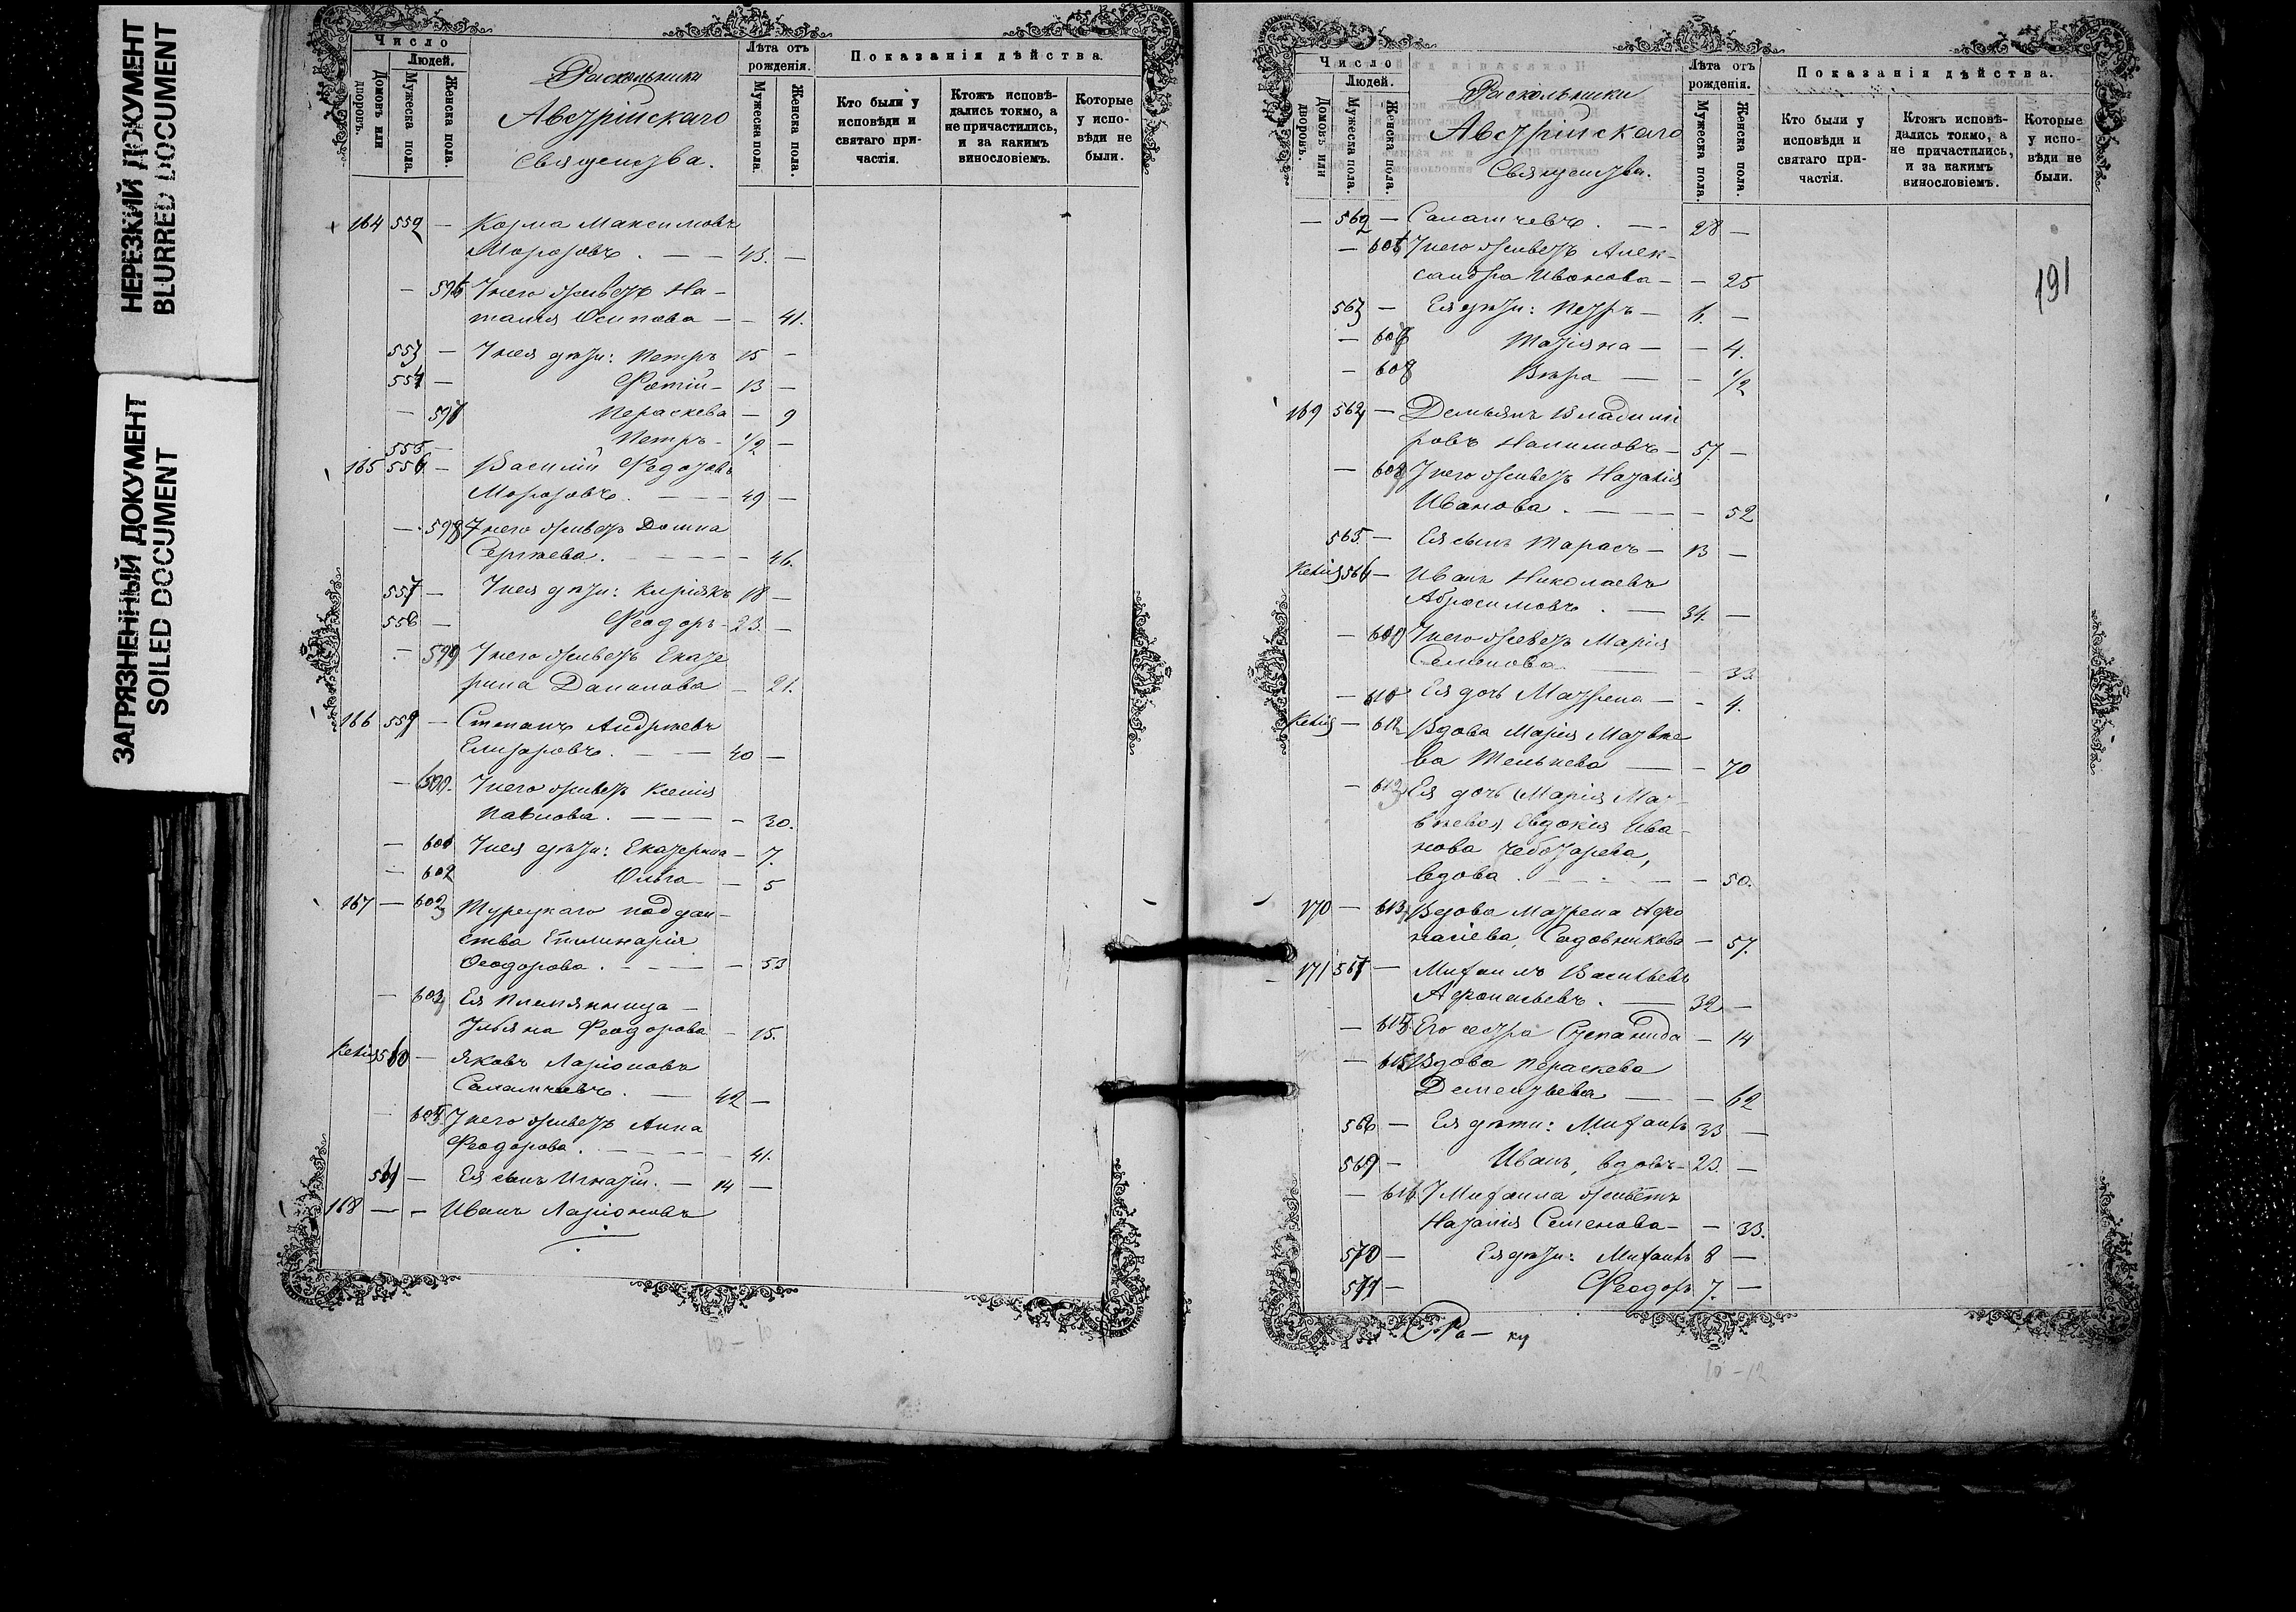 НЕРЕЗКИЙ ДОКУМЕНТ
BLURRED DOCUMENT
ЗАГРЯЗНЕННЫЙ ДОКУМЕНТ
SOILED DOCUMENT
Число
Людей.
Домовъ или дворовъ.
Мужеска пола.
Женска пола.
Раскольники
Австрійскаго
Священства.
Лѣта отъ рожденія.
Мужеска пола.
Женска пола.
Показанія дѣйства.
Кто были у исповѣди и святаго причастія.
Ктожъ исповѣдались токмо, а не причастились, и за какимъ винословіемъ.
Которые у исповѣди не были.
164 552 — Козма Максимовъ
Морозовъ . — — 43. —
— 596 У него жена На-
талія Осипова — — 41.
553 — У нея дѣти: Петръ 15 —
554 — Фотій — 13 —
— 597 Параскева — 9
555 — Петръ — 1/2 —
165 556 — Василій Федотовъ
Морозовъ . — — 49 —
— 598 У него жена Домна
Сергѣева . — — 46.
557 — У нея дѣти: Киріякъ 18 —
558 — Феодоръ — 23. —
— 599 У него жена Екате
рина Данилова — 21.
166 559 — Степанъ Андреевъ
Елизаровъ . — 40 —
— 600. У него жена Ксенія
Павлова . — — 30.
— 601 У нея дѣти: Екатерина — 7.
— 602 Ольга — — 5
167 — 603 Турецкаго поддан-
ства
Ѳеодорова . — — 53
— 604 Ея племянница —
Ульяна Феодорова — 15.
560 — Яковъ Ларіоновъ
Саламчевъ . — 42 —
— 605 У него жена Анна
Феодорова . — — 41.
561 — Ея сынъ Игнатій . — 14 —
168 — — Иванъ Ларіоновъ
10 — 10
Число
Людей.
Домовъ или дворовъ.
Мужеска пола.
Женска пола.
Раскольники
Австрійскаго
Священства.
Лѣта отъ рожденія.
Мужеска пола.
Женска пола.
Показанія дѣйства.
Кто были у исповѣди и святаго причастія.
Ктожъ исповѣдались токмо, а не причастились, и за какимъ винословіемъ.
Которые у исповѣди не были.
191
— 562 — Саламчевъ . — — 28 —
— 606 У него жена Алек-
сандра Иванова — — 25
563 — Ея дѣти: Петръ — 6. —
— 607 Татіяна — — 4.
— 608 Вѣра — — 1/2
169 564 — Демьянъ Владимі
ровъ Налимовъ — 57. —
— 609 У него жена Наталія
Иванова . — — 52
565 — Ея сынъ Тарасъ — 13 —
566 — Иванъ Николаевъ
Абросимовъ . — 34. —
— 610 У него жена Марія
Семенова — — 33.
— 611 Ея дочь Матрена — — 4.
— 612 Вдова Марія Матвѣе
ва — — 70
— 613 Ея дочь Марія Мат-
вѣева Евдокія Ива-
нова Чеботарева,
вдова . — — 50.
170 — 613 Вдова Матрена Афо
насіева, Садовникова — 57.
171 567 — Михаилъ Васильевъ
Афонасьевъ . — 32 —
— 615 Его сестра Степанида — 14
— 615 Вдова Параскева
Дементьева — — 62
568 — Ея дѣти: Михаилъ 33 —
569 — Иванъ, вдовъ — 23. —
— 616 У Михаила жена
Наталія Семенова — — 33.
570 — Ея дѣти: Михаилъ 8 —
571 — Феодоръ 7. —
10 — 12